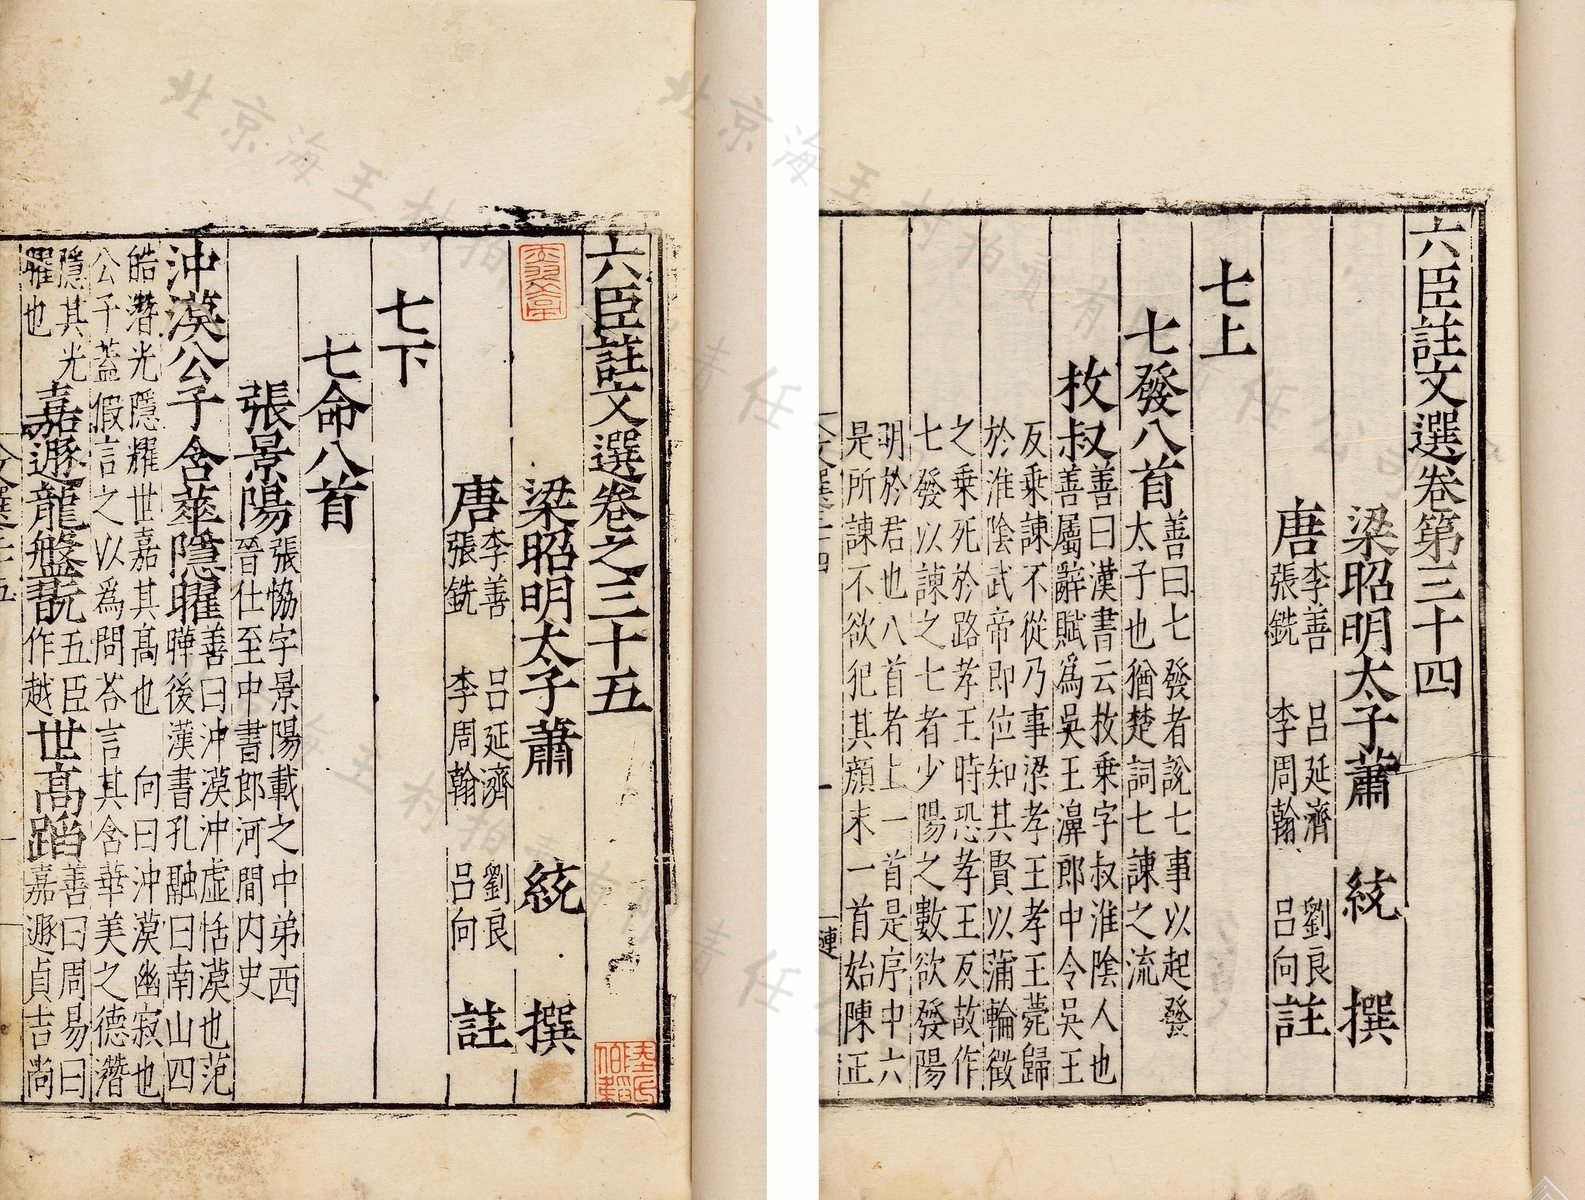 六臣註文選卷第三十四
梁昭明太子蕭統撰
唐李善呂延濟劉良張銑李周翰呂向註
七上
七發八首善曰七發者說七事以起發太子也猶楚詞七諫之流
枚叔善曰漢書云枚乘字叔淮陰人也善屬辭賦爲吳王濞郎中令吳王
反乘諫不從乃事梁孝王孝王薨歸於淮陰武帝即位知其賢以蒲輪徵
之乘死於路孝王時恐孝王反故作七發以諫之七者少陽之數欲發陽
明於君也八首者上一首是序中六是所諫不欲犯其顔末一首始陳正
六臣註文選卷之三十五
梁昭明太子蕭統撰
唐李善呂延濟劉良張銑李周翰呂向註
七下
七命八首
張景陽張協字景陽載之中弟西晉仕至中書郎河間內史
沖漠公子含華隱曜善曰沖漠沖虛恬漠也范曄後漢書孔融曰南山四
皓潛光隱耀世嘉其髙也 向曰沖漠幽寂也公子蓋假言之以爲問荅言其含華美之德潛
隱其光曜也嘉遯龍盤翫五臣作越世髙蹈善曰周易曰嘉遯貞吉尚
北京海王村拍賣有限責任公司